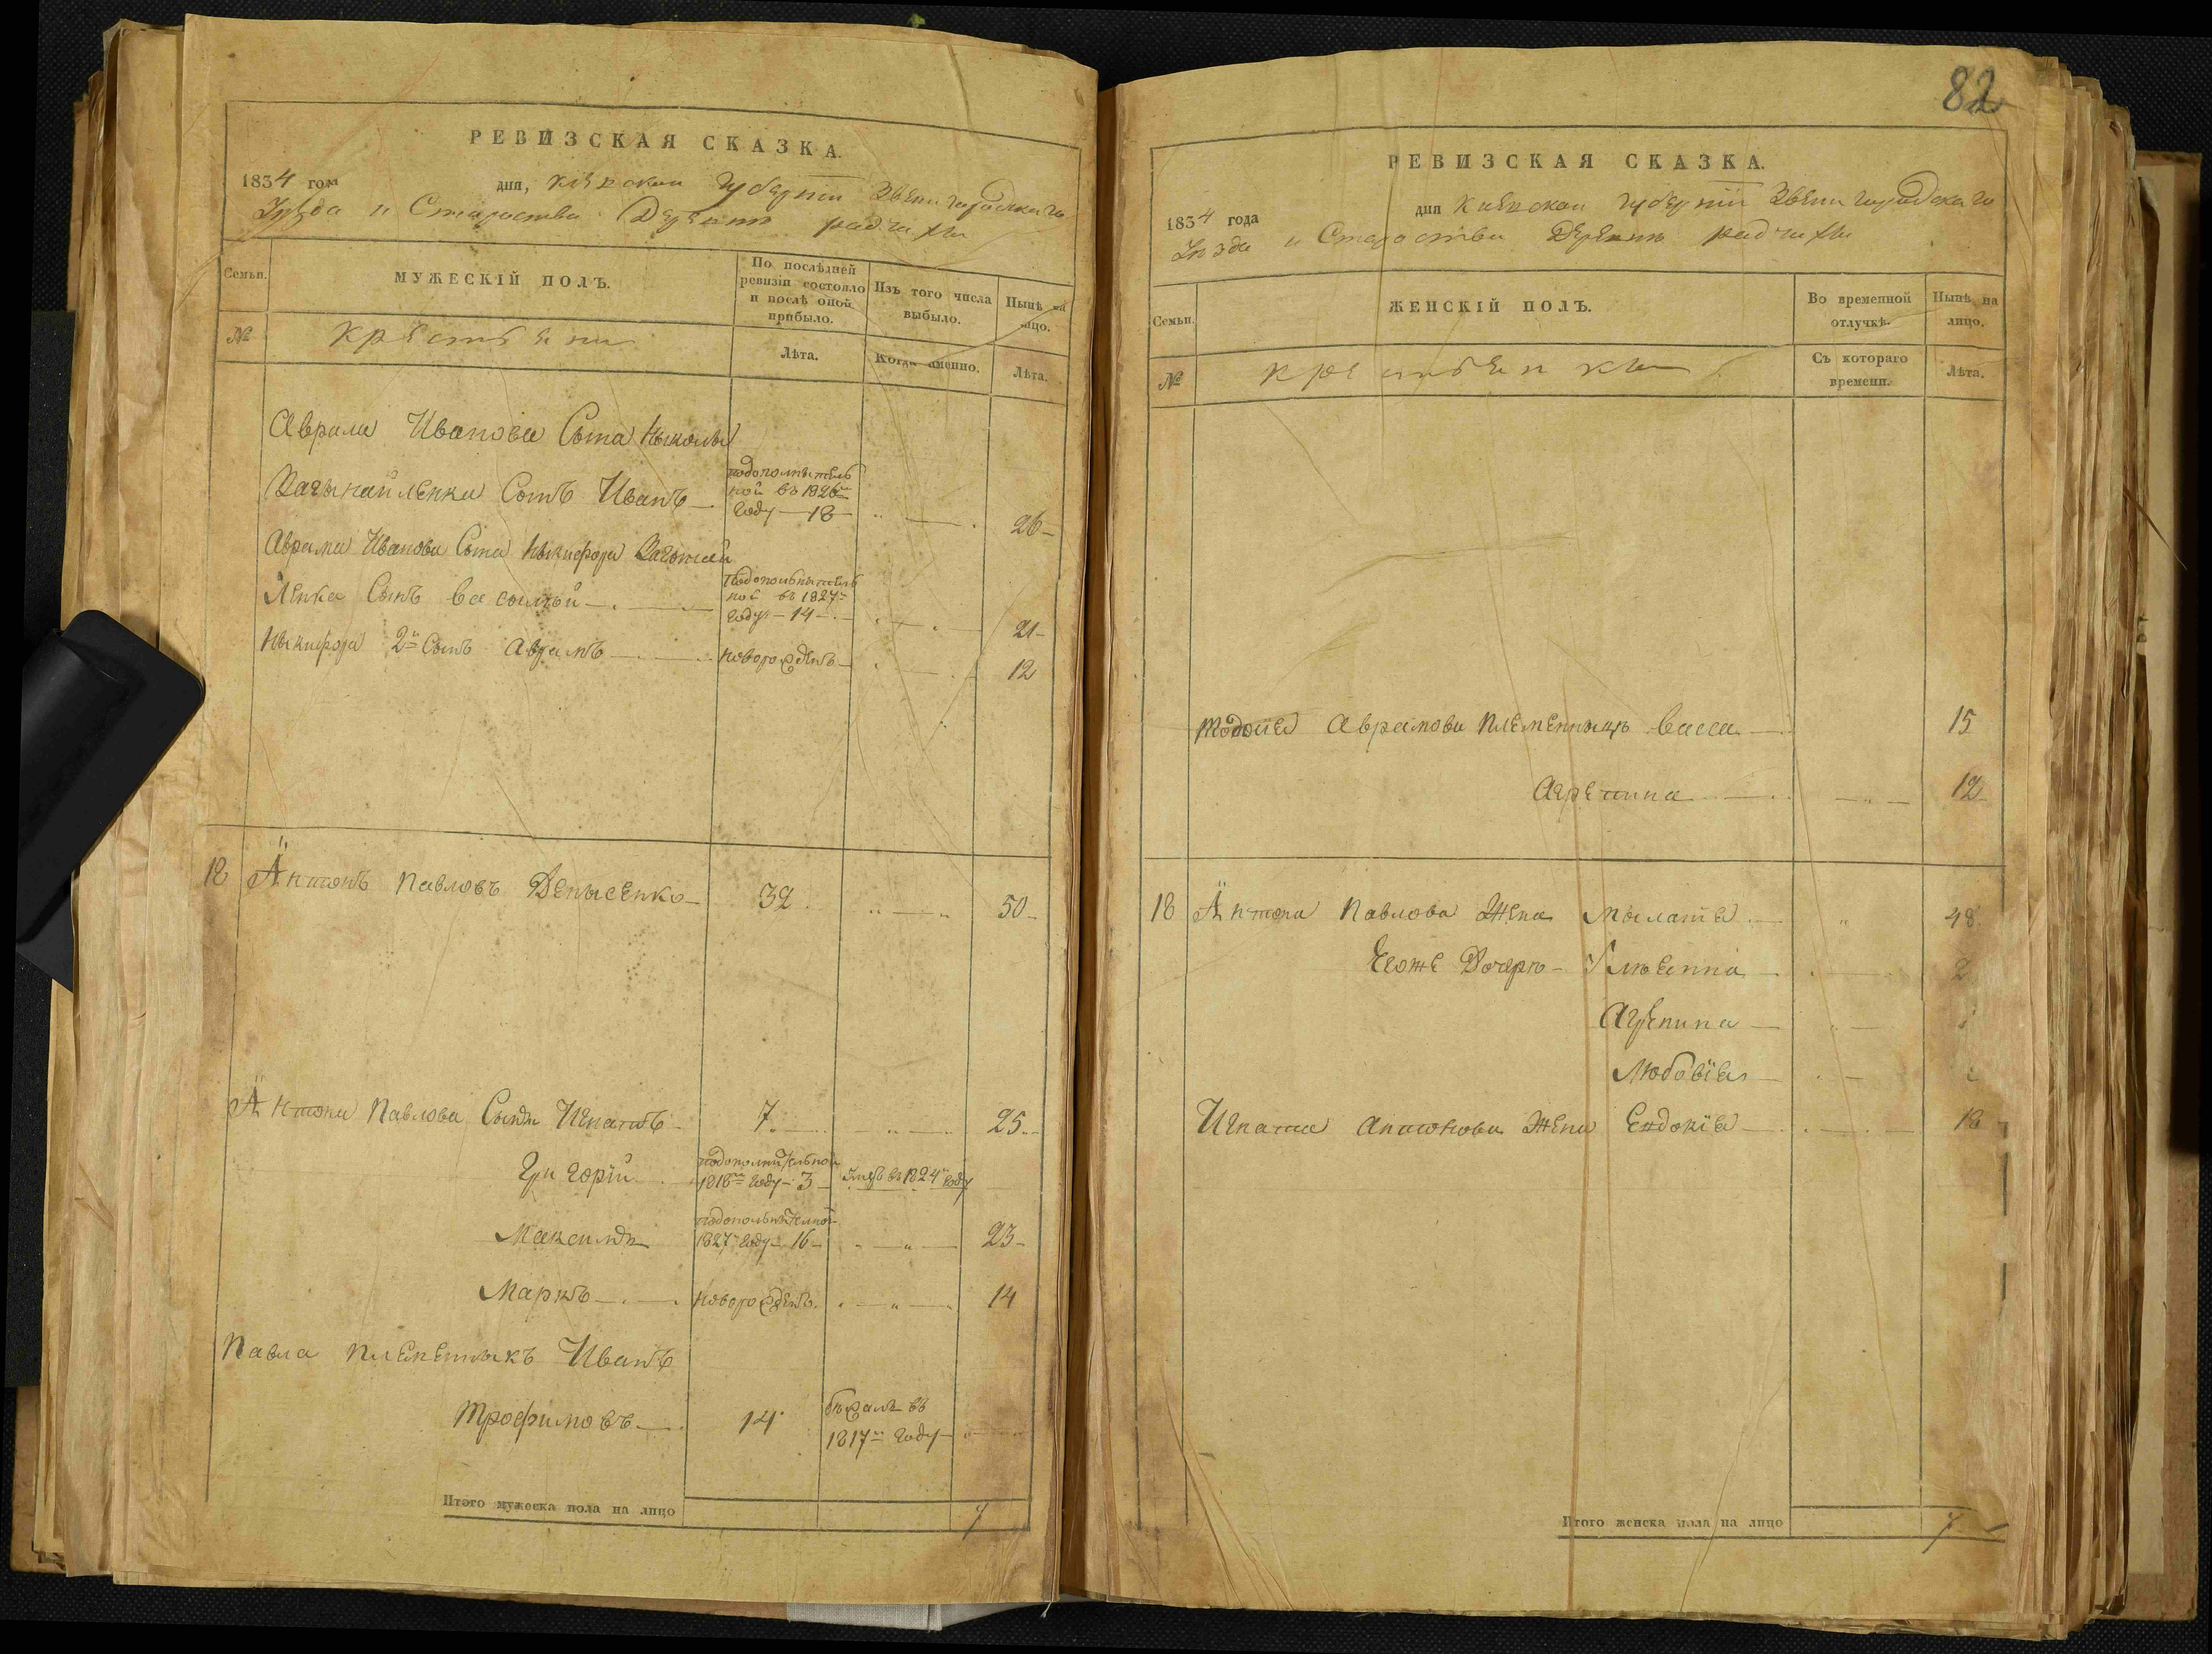 РЕВИЗСКАЯ СКАЗКА.
1834 года дня, Киевской Губернии Звенигородскаго
Уѣзда и Староства Деревни радчихи
Семьи.
МУЖЕСКІЙ ПОЛЪ.
По послѣдней
ревизіи состояло
и послѣ оной
прибыло.
Изъ того числа
выбыло.
Нынѣ на
лицо.
№
крестьени
Лѣта.
Когда именно.
Лѣта.
Аврама Иванова Сына Николы
Сынъ Иванъ
подополнитель
ной въ 1826м
Году — 18 26
Аврама Иванова Сына Никифора
ленка Сынъ василий
подополнитель
ной въ 1827
Году — 14 21
Никифора 2й Сынъ Аврамъ новорожденъ 12
18 Антонъ Павловъ Денысенко 32 50
Антона Павлова Сыны Игнатъ 7 25
Григорій
подополнительной
1818м Году 3 умеръ въ 1824м Году
Максимъ
подополнительной
1827 Году 16 23
Маркъ новорожденъ 14
Павла племенныкъ Иванъ
Трофимовъ 14
бежалъ въ
1817м Году
Итого мужеска пола на лицо 7
82
РЕВИЗСКАЯ СКАЗКА.
1834 года дня Киевской Губерніи Звенигородскаго
Уѣзда и Староства Деревни радчихи
Семьи.
ЖЕНСКІЙ ПОЛЪ.
Во временной
отлучкѣ.
Нынѣ на
лицо.
№
крестьенки
Съ котораго
времени.
Лѣта.
Аврамова племенныцѣ васса 15
Агрепина 12
18 Антона Павлова Жена Мыланіа 48
Егоже Дочери
Агрепина
Любовіа
Игната Антонова Жена Евдокіа 18
Итого женска пола на лицо 7